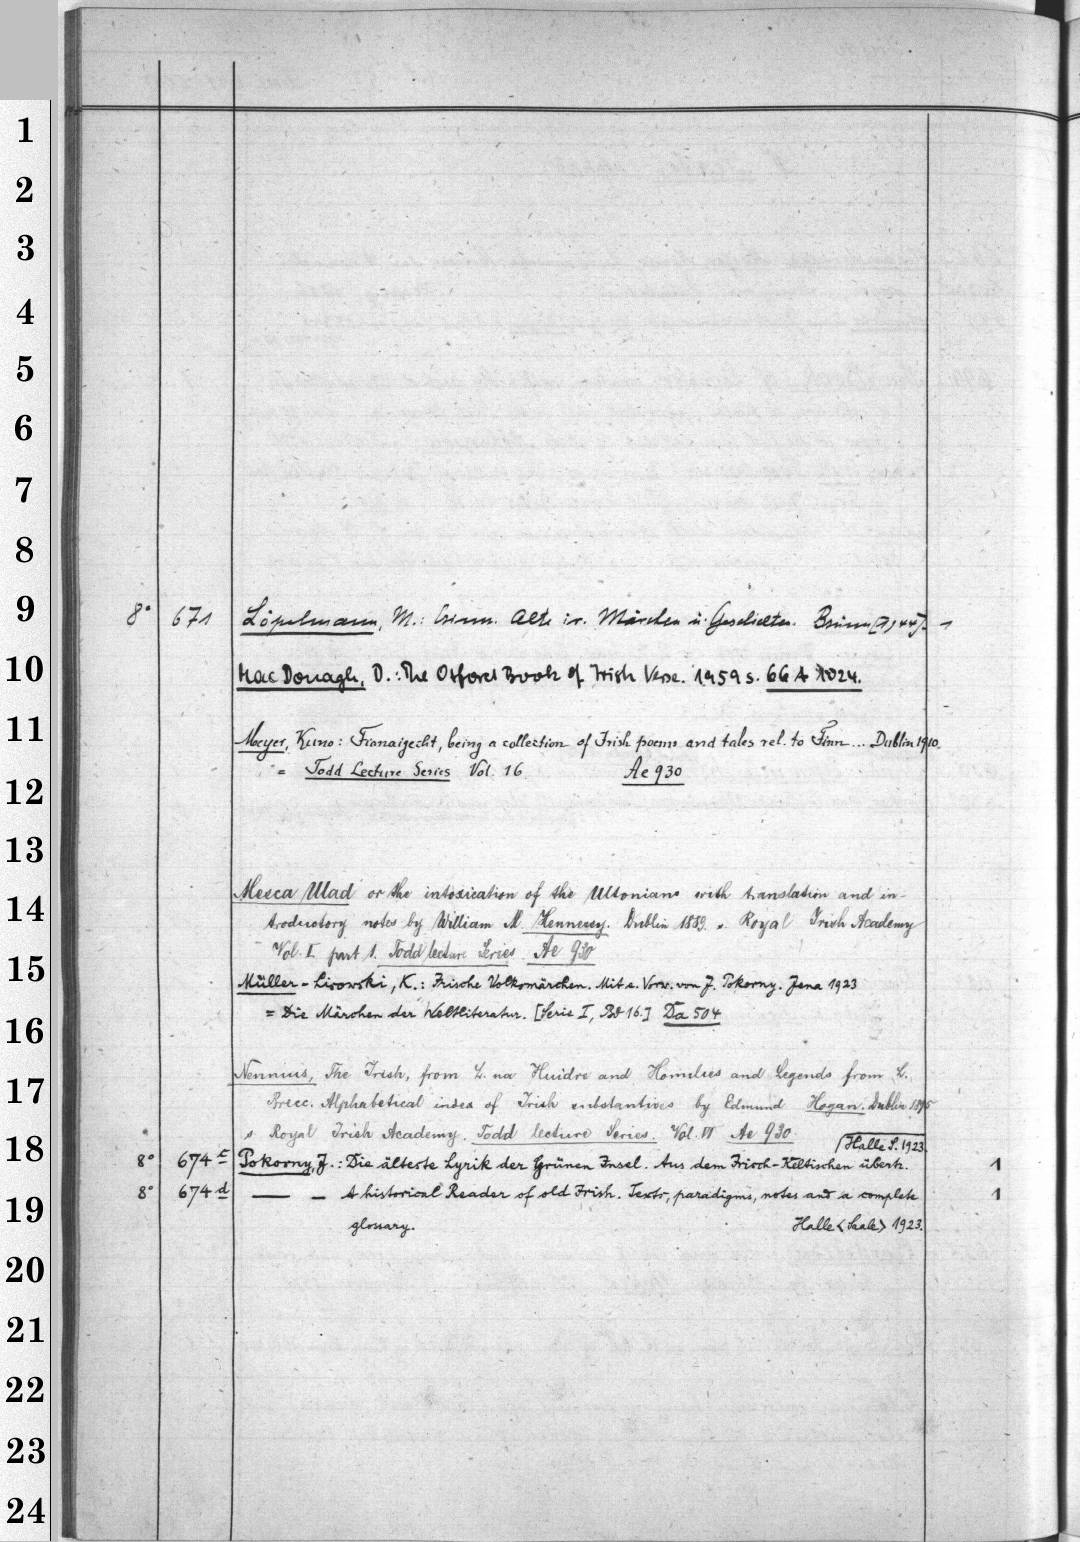 1
2
3
4
5
6
7
8
9
8° 671 Löpelmann, M.: Erinn. Alte ir. Märchen u. Geschichten. Brünn [1944]. 1
10
MacDonagh, D.: The Oxford Book of Irish Verse. 1959 s. 66 A 1024.
11
Meyer, Kuno: Fianaigecht, being a collection of Irish poems and tales rel. to Finn ... Dublin 1910.
= Todd Lecture Series Vol. 16 Ae 930
12
13
14
Mesca Ulad or the intoxication of the Ultonians with translation and in-
troductory notes by William M. Hennessy. Dublin 1889. s. Royal Irish Academy
Vol. I part 1. Todd lecture Series Ae 930
15
Müller-Lisowski, K.: Irische Volksmärchen. Mit e. Vorw. von J. Pokorny. Jena 1923
= Die Märchen der Weltliteratur. [Serie I, Bd 16.] Da 504
16
17
Nennius, The Irish, from L. na Huidre and Homilies and Legends from L.
Brecc. Alphabetical index of Irish substantives by Edmund Hogan. Dublin 1895
s Royal Irish Academy. Todd lecture Series. Vol. VI Ae 930.
18
Halle S. 1923.
8° 674 c Pokorny, J.: Die älteste Lyrik der Grünen Insel. Aus dem Irisch-Keltischen übertr. 1
8° 674 d — – A historical Reader of old Irish. Texts, paradigms, notes and a complete 1
19
glossary. Halle <Saale> 1923.
20
21
22
23
24